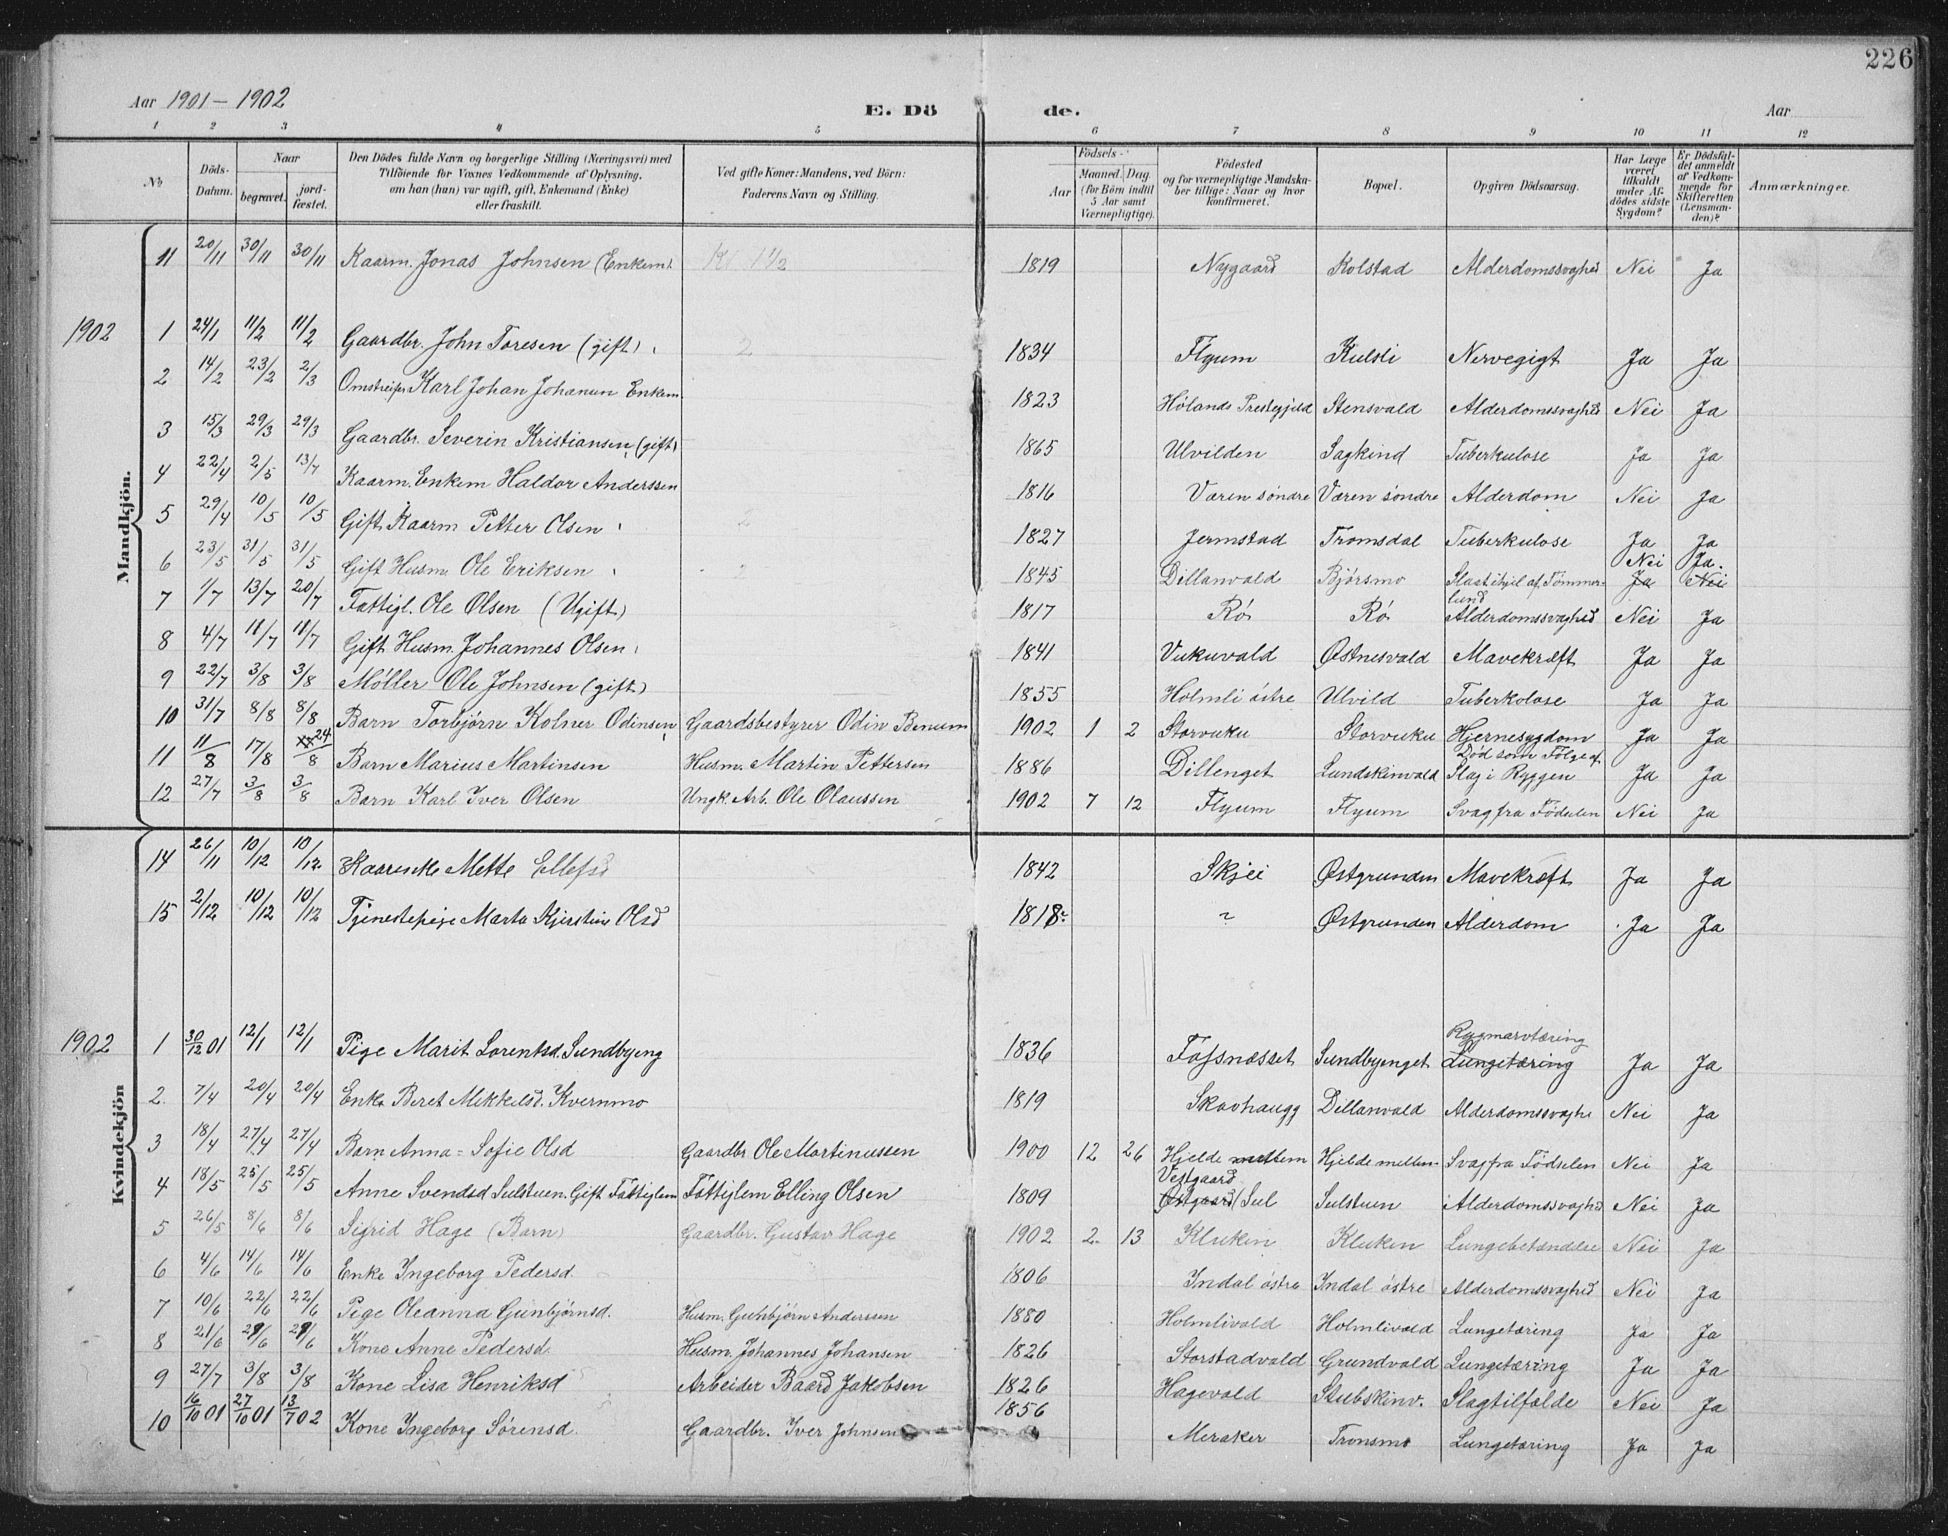 226
Aar 1901 – 1902 E. Dö de. Aar
1 2 3 4 5 6 7 8 9 10 11 12
No Döds-Datum. Naar begravet. jord-fæstet. Den Dödes fulde Navn og borgerlige Stilling (Næringsvei) med Tilföiende for Voxnes Vedkommende af Oplysning, om han (hun) var ugift, gift, Enkemand (Enke) eller fraskilt. Ved gifte Koner: Mandens, ved Börn: Faderens Navn og Stilling. Födsels- Aar Maaned. Dag. (for Börn indtil 5 Aar samt Værnepligtige). Födested og for værnepligtige Mandskaber tillige: Naar og hvor konfirmeret. Bopæl. Opgiven Dödsaarsag. Har Læge været tilkaldt under Afdödes sidste Sygdom? Er Dödsfaldet anmeldt af Vedkommende for Skifteretten (Lensmanden)? Anmærkninger.
Mandkjön.
11 20/11 30/11 30/11 Kaarm. Jonas Johnsen (Enkem). 1819 Nygaard Kolstad Alderdomssvaghed Nei Ja
1902 1 24/1 11/2 11/2 Gaardbr. John Toresen (gift) 2 1834 Flyum Kulsli Nervegigt Ja Ja
2 14/2 23/2 2/3 Omstreifer Karl Johan Johansen Enkem. 1823 Hölands Prestegjeld Stensvald Alderdomssvaghed Nei Ja
3 15/3 29/3 29/3 Gaardbr. Severin Kristiansen (gift) 1865 Ulvilden Sagkind Tuberkulose Ja Ja
4 22/4 2/5 13/7 Kaarm. Enkem Haldor Anderssen 1816 Væren söndre Væren söndre Alderdom Nei Ja
5 29/4 10/5 10/5 Gift Kaarm Petter Olsen 2 1827 Jermstad Tromsdal Tuberkulose Ja Ja
6 23/5 31/5 31/5 Gift Husm. Ole Eriksen 2 1845 Dillanvald Björsmo Slaat ihjel af Tömmerlund Nei Ja Ja. Nei
7 1/7 13/7 20/7 Fattigl. Ole Olsen (Ugift) 1817 Rö Rö Alderdomssvaghed Nei Ja
8 4/7 11/7 11/7 Gift Husm. Johannes Olsen 1841 Vukuvald Østnesvald Mavekræft Ja Ja
9 22/7 3/8 3/8 Møller Ole Johnsen (gift) 1855 Holmli östre Ulvild Tuberkolose Ja Ja
10 31/7 8/8 8/8 Barn Torbjørn Kolner Odinsen Gaardsbestyrer Odin Benum 1902 1 2 Storvuku Storvuku Hjernesygdom Ja Ja
11 11/8 17/8 24/8 Barn Marius Martinsen Husm. Martin Pettersen 1886 Dillenget Lundskinvald Död som Fölge af Slag i Ryggen Ja Ja
12 27/7 3/8 3/8 Barn Karl Iver Olsen Ungk. Arb. Ole Olaussen 1902 7 12 Flyum Flyum Svag fra Födselen Nei Ja
Kvindekjön
14 26/11 10/12 10/12 Kaarenke Mette Ellefsd 1842 Skjei Østgrunden Mavekræft Ja Ja
15 2/12 10/12 10/12 Tjenestepige Marta Kjerstine Olsd 1818 ~ Østgrunden Alderdom Ja Ja
1902 1 30/12 01 12/1 12/1 Pige Marit Lorentsd. Sundbyeng 1836 Fosnæsset Sundbyenget Rygmarvtæring Lungetæring Ja Ja
2. 7/4 20/4 20/4 Enke Beret Mikkelsd. Kvernmo 1819 Skavhaugg Dillanvald Alderdomssvaghe Nei Ja
3 18/4 27/4 27/4 Barn Anna=Sofie Olsd Gaardbr Ole Martinussen 1900 12 26 Hjelde mellem Hjelde mellem Svag fra Födselen Nei Ja
4 18/5 25/5 25/5 Anne Svendsd Sulstuen. Gift Fattiglem Fattiglem Elling Olsen 1809 Vestgaard Østgaard/Sul Sulstuen Alderdomssvaghed Nei Ja
5 26/5 8/6 8/6 Sigrid Hage (Barn) Gaardbr. Gustav Hage 1902 2 13 Kluken Kluken Lungebetændelse Nei Ja
6 4/6 14/6 14/6 Enke Ingeborg Pedersd. 1806 Indal östre Indal östre Alderdomssvaghed Nei Ja
7 10/6 22/6 22/6 Pige Oleanna Gunbjørnsd. Husm. Gunbjørn Anderssen 1880 Holmlivald Holmlivald Lungetæring Ja Ja
8 21/6 29/6 29/6 Kone Anne Pedersd. Husm. Johannes Johansen 1826 Storstadvald Grundvald Lungetæring Ja Ja
9 27/7 3/8 3/8 Kone Lisa Henriksd Arbeider Baard Jakobsen 1826 Hagevald Stubskinv. Slagtilfælde Nei Ja
10 16/10 01 27/10 01 13/7 02 Kone Ingeborg Sørensd. Gaardbr. Iver Johnsen 1856 Meraker Tronsmo Lungetæring Ja Ja